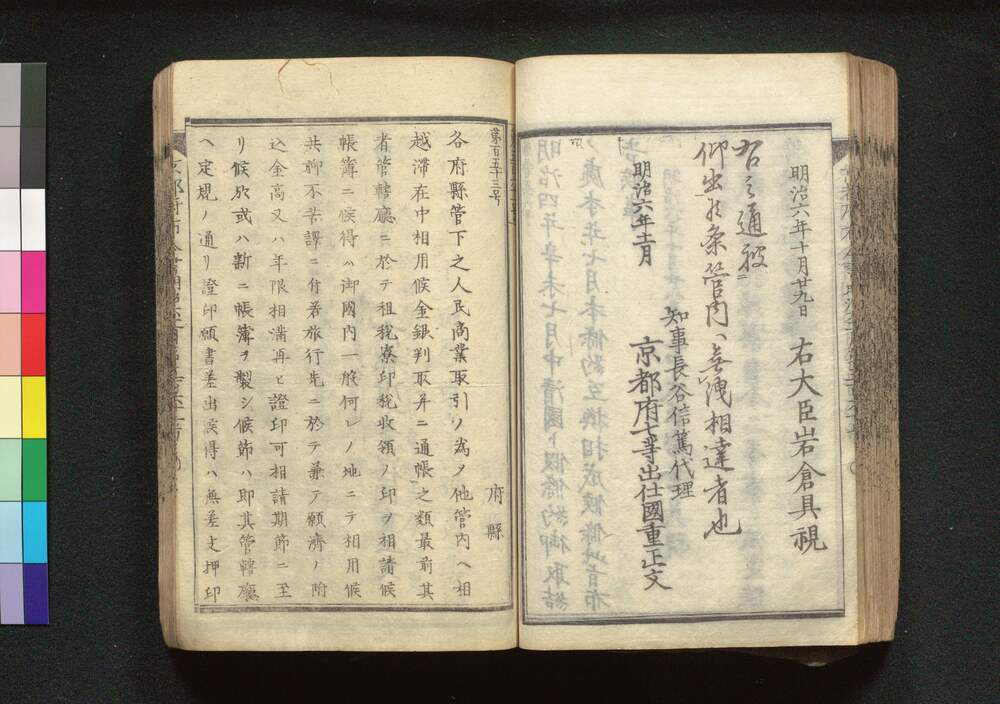 明治六年十月廿九日　右大臣岩倉具視
右之通被
仰出候条管内ヘ無洩相達者也
知事長谷信篤代理
明治六年十一月　京都府七等出仕國重正文
第百五十三号
府縣
各府縣管下之人民商業取引ノ為メ他管内ヘ相
越滞在中相用候金銀判取并ニ通帳之類最前其
者管轄廳ニ於テ租税寮印税收領ノ印ヲ相請候
帳簿ニ候得ハ御國内一般何レノ地ニテ相用候
共聊不苦譯ニ付若旅行先ニ於テ兼テ願濟ノ附
込金高又ハ年限相満再ヒ證印可相請期節ニ至
リ候欤或ハ新ニ帳簿ヲ製シ候節ハ即其管轄廳
ヘ定規ノ通リ證印願書差出候得ハ無差支押印